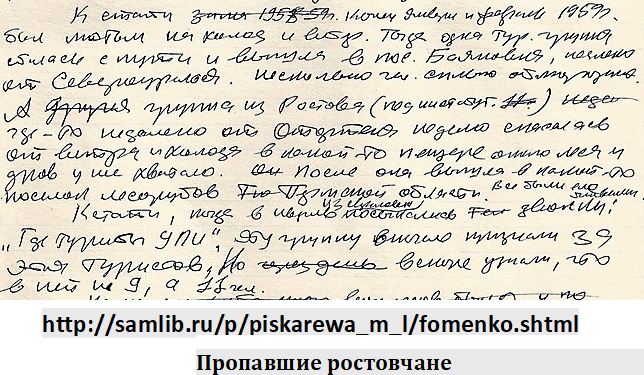 К стати ~~зима 1958-59г.~~ Конец января и февраль 1959г.
был лютым на холод и ветр. Тогда одна тур. группа
сбилась с пути и вышла в пос. Баяновка, недалеко
от Североуральска. Несколько чел. сильно обморожено.
А ~~другая~~ группа из Ростова (пединститут.) ~~неде~~
где-то недалеко от Отортена неделю спасалась
от ветра и холода в какой-то пещере около леса и
дров у них хватало. ~~Он~~ После она вышла в какой-то
поселок лесорубов Пермской области. Все были
Кстати, тогда в посыпались звонки:
„Где туристы УПИ", эту группу вначале приняли за
этих туристов, Но вскоре узнали, что
в ней не 9, а 11 чел.
http://samlib.ru/p/piskarewa_m_l/fomenko.shtml
Пропавшие ростовчане